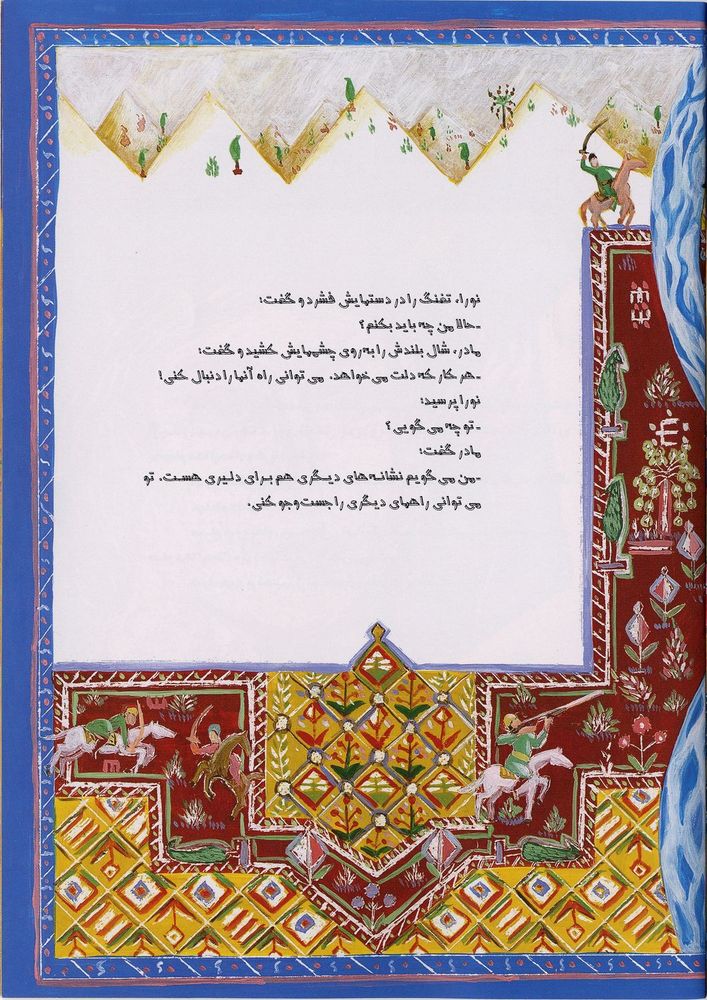 نورا، تفنگ را در دستهایش فشرد و گفت:
-حالا من چه باید بکنم؟
مادر، شال بلندش را به روی چشمهایش کشید و گفت:
-هر کار که دلت می خواهد. می توانی راه آنها را دنبال کنی!
نورا پرسید:
-تو چه می گویی؟
مادر گفت:
-من می گویم نشانه های دیگری هم برای دلیری هست. تو
می توانی راههای دیگری را جست و جو کنی.